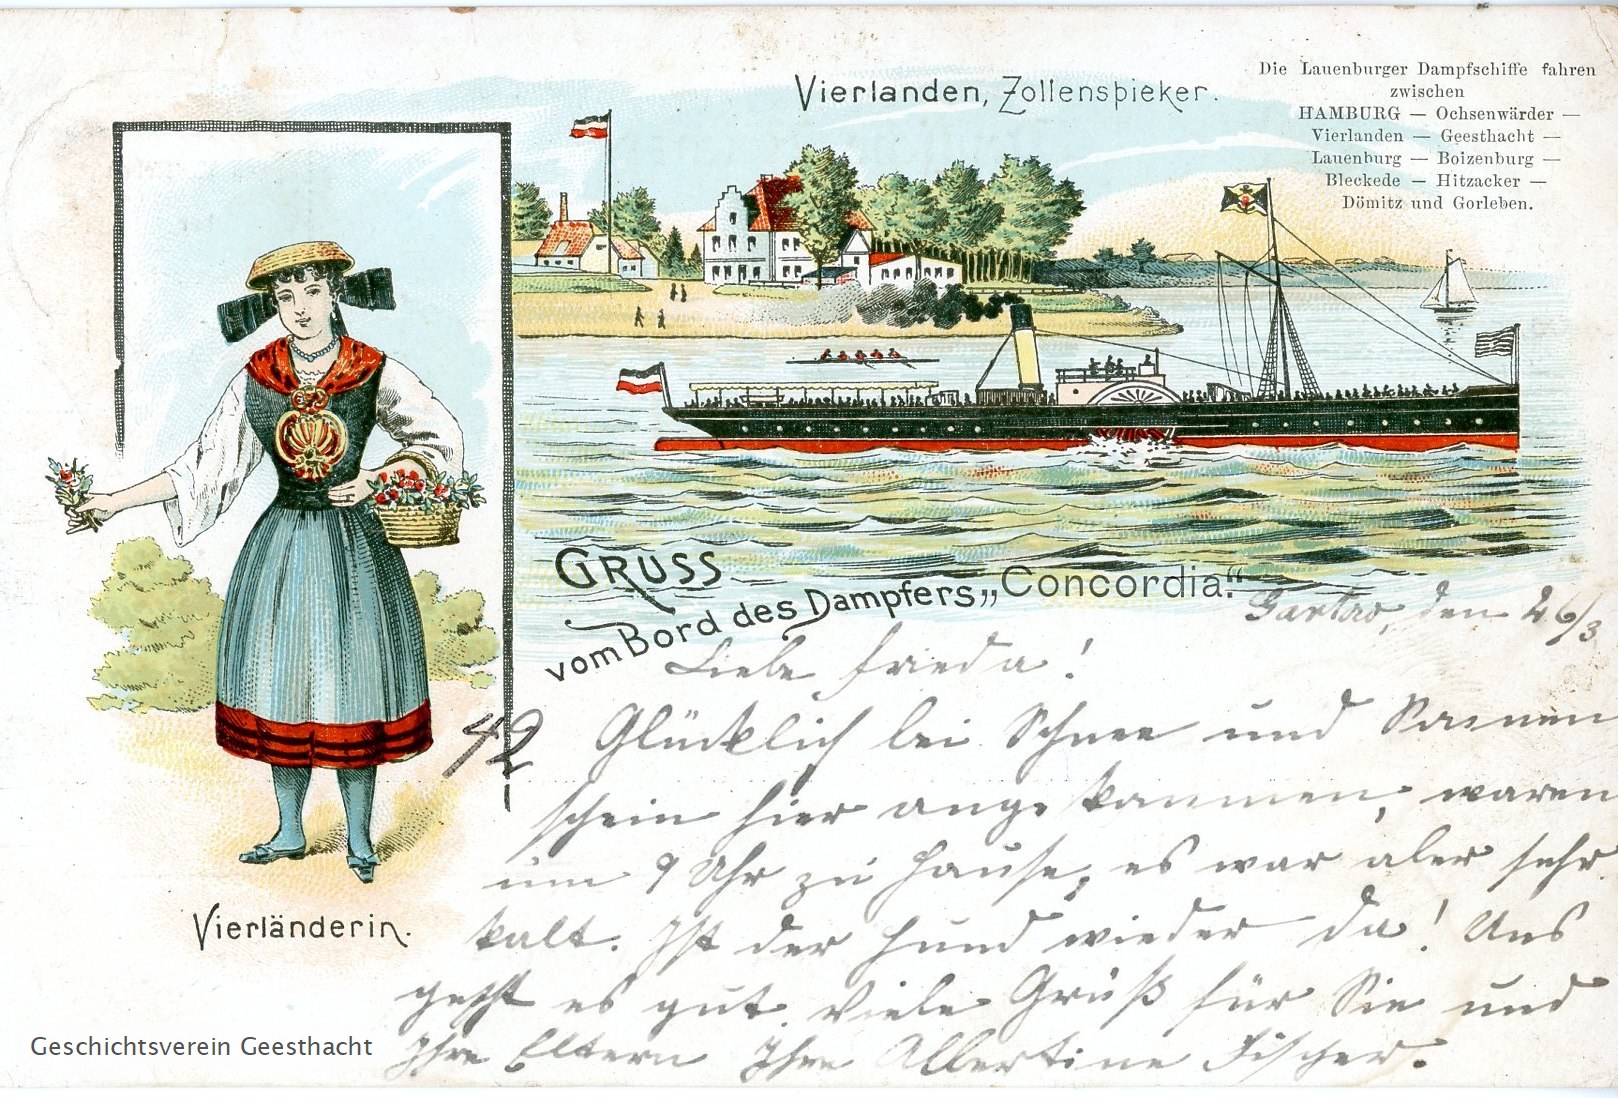 Vierlanden, Zollenspieker.
Die Lauenburger Dampfschiffe fahren
zwischen
HAMBURG — Ochsenwärder —
Vierlanden — Geesthacht —
Lauenburg — Boizenburg —
Bleckede — Hitzacker —
Dömitz und Gorleben.
GRUSS
vom Bord des Dampfers „Concordia."
Gartow, den 26/3
Liebe Frieda!
42
Glücklich bei Schnee und Sonnen
schein hier angekommen, waren
um 9 Uhr zu Hause, es war aber sehr
kalt. Ist der Hund wieder da! Uns
geht es gut. Viele Grüße für Sie und
Ihre Eltern Ihre Albertine Fischer.
Vierländerin.
Geschichtsverein Geesthacht